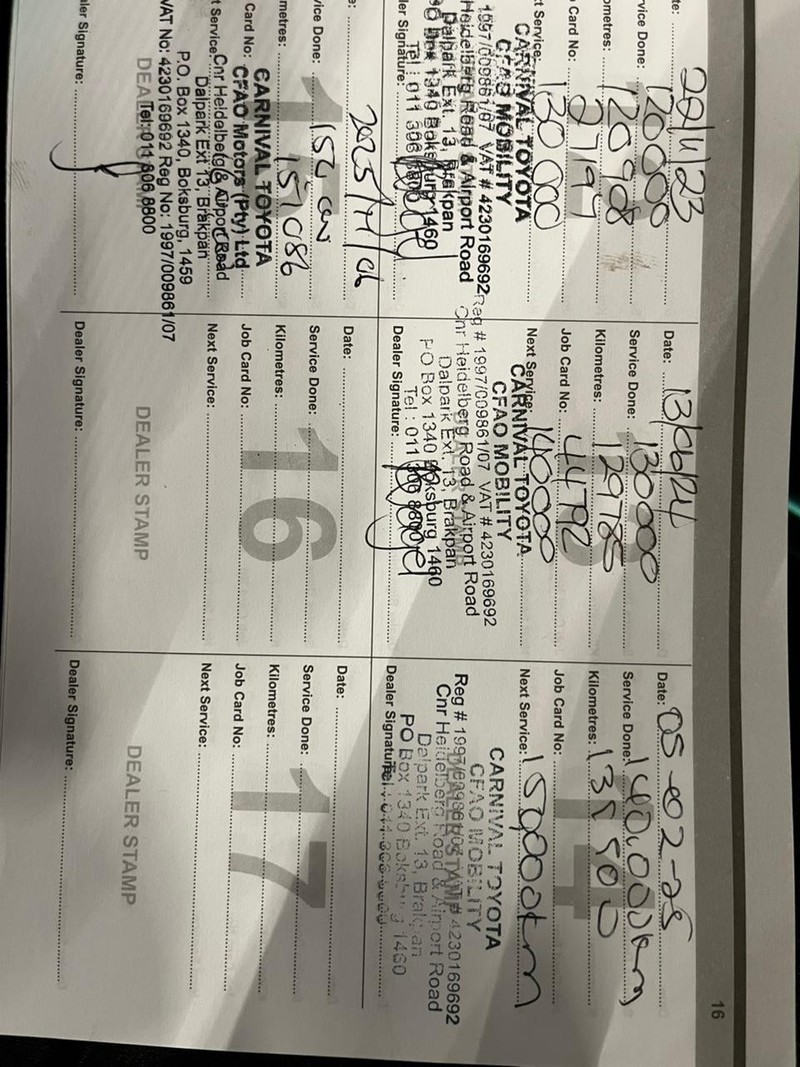 16
te: 22/11/23
vice Done: 120000
ometres: 120908
Card No: 27197
t Service: 130 000
CARNIVAL TOYOTA
CFAO MOBILITY
1997/009861/07 VAT # 4230169692
Heidelberg Road & Airport Road
Dalpark Ext. 13, Brakpan
PO Box 1340 Boksburg 1460
Tel : 011 306 8800
ler Signature:
Date: 13/06/24
Service Done: 130000
Kilometres: 129785
Job Card No: 44792
Next Service: 140000
CARNIVAL TOYOTA
CFAO MOBILITY
Reg # 1997/009861/07 VAT # 4230169692
Cnr Heidelberg Road & Airport Road
Dalpark Ext. 13, Brakpan
PO Box 1340 Boksburg 1460
Tel : 011 306 8800
Dealer Signature:
Date: 05-02-25
Service Done: 140.000km
Kilometres: 135500
Job Card No: 14
Next Service: 150,000km
CARNIVAL TOYOTA
CFAO MOBILITY
DEALER STAMP
Reg # 1997/009861/07 VAT # 4230169692
Cnr Heidelberg Road & Airport Road
Dalpark Ext. 13, Brakpan
PO Box 1340 Boksburg 1460
Dealer Signature:
e: 2025/11/06
vice Done:
metres: 151086
Card No:
t Service:
CARNIVAL TOYOTA
CFAO Motors (Pty) Ltd
Cnr Heidelberg & Airport Road
Dalpark Ext 13, Brakpan
P.O. Box 1340, Boksburg, 1459
VAT No: 4230169692 Reg No: 1997/009861/07
Tel: 011 306 8800
aler Signature:
16
Date:
Service Done:
Kilometres:
Job Card No:
Next Service:
DEALER STAMP
Dealer Signature:
17
Date:
Service Done:
Kilometres:
Job Card No:
Next Service:
DEALER STAMP
Dealer Signature: